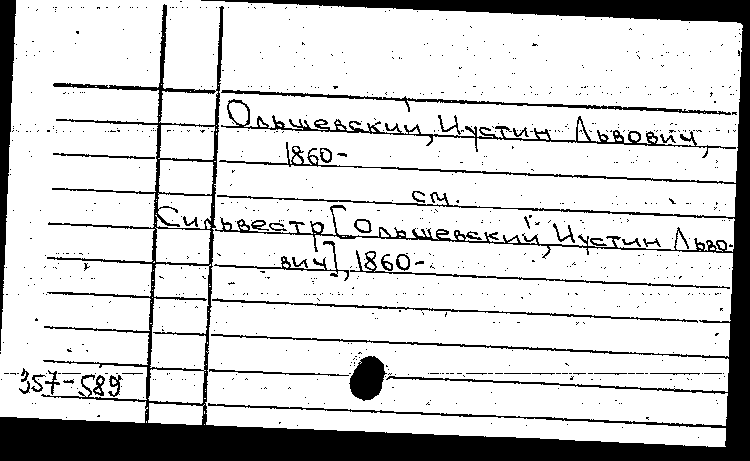 Ольшевский, Иустин Львович,
1860-
см.
Сильвестр [Ольшевский, Иустин Льво-
вич], 1860-
357-589